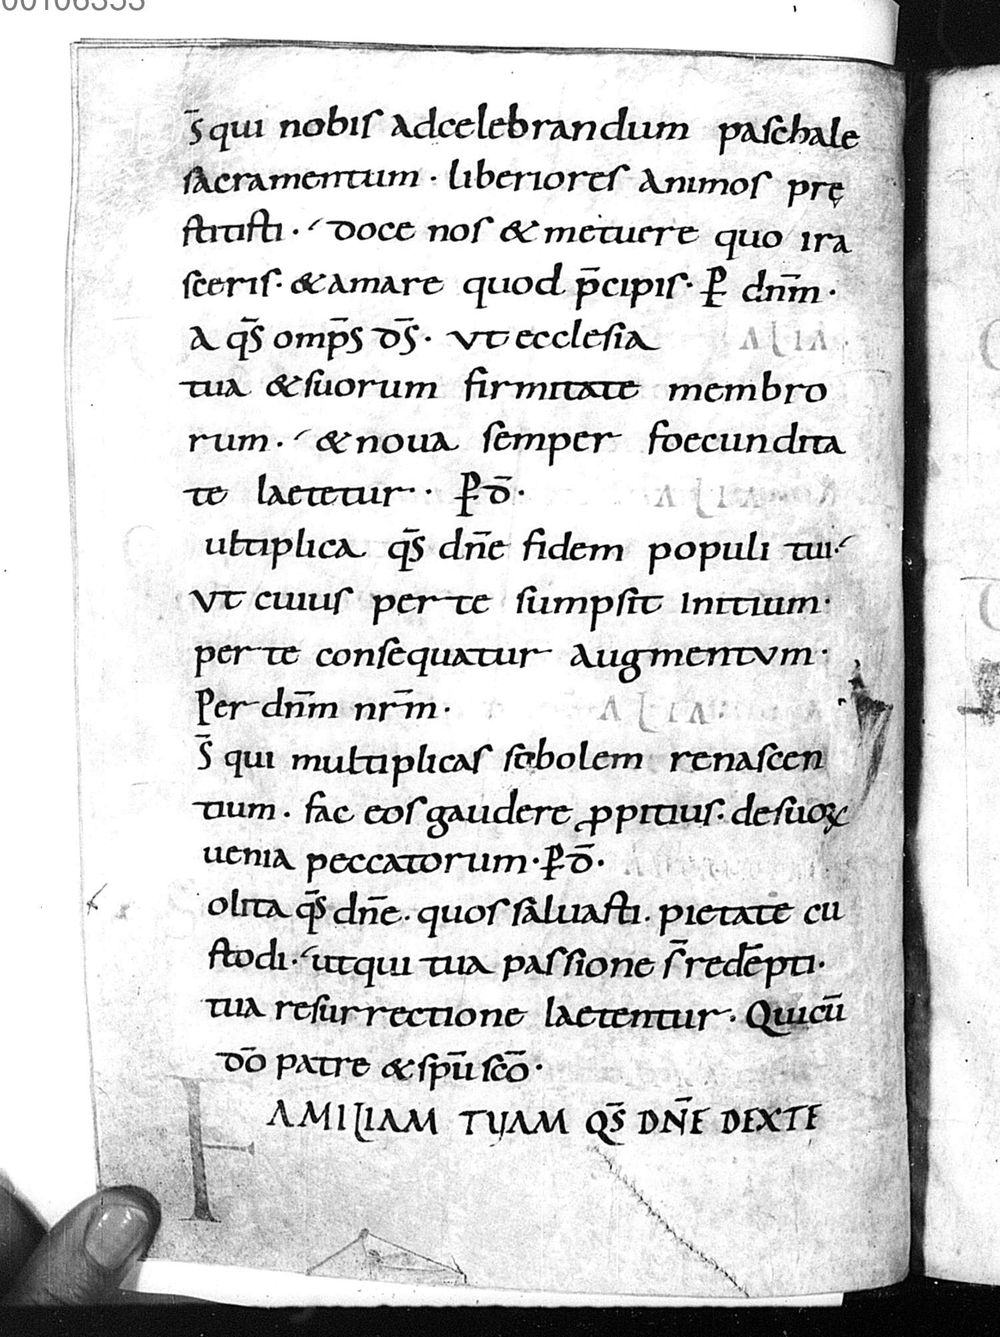 00106353
s̄ qui nobis adcelebrandum paschale
sacramentum · liberiores animos prę
stitisti · doce nos & metuere quo ira
sceris · & amare quod p̄cipis · P̄ dn̄m ·
a q̄s omp̄s ds̄ · ut ecclesia
tua & suorum firmitate membro
rum · & noua semper foecundita
te laetetur · P̄ d̄ ·
ultiplica q̄s dn̄e fidem populi tui ·
ut cuius per te sumpsit initium ·
per te consequatur augmentum ·
Per dn̄m nr̄m ·
s̄ qui multiplicas sobolem renascen
tium · fac eos gaudere ꝓpitius · de suoꝝ
uenia peccatorum · P̄ d̄ ·
olita q̄s dn̄e · quos saluasti · pietate cu
stodi · ut qui tua passione s̄ redēpti ·
tua resurrectione laetentur · Quicū
dō patre & spū scō ·
FAMILIAM TUAM QS̄ DN̄E DEXTE